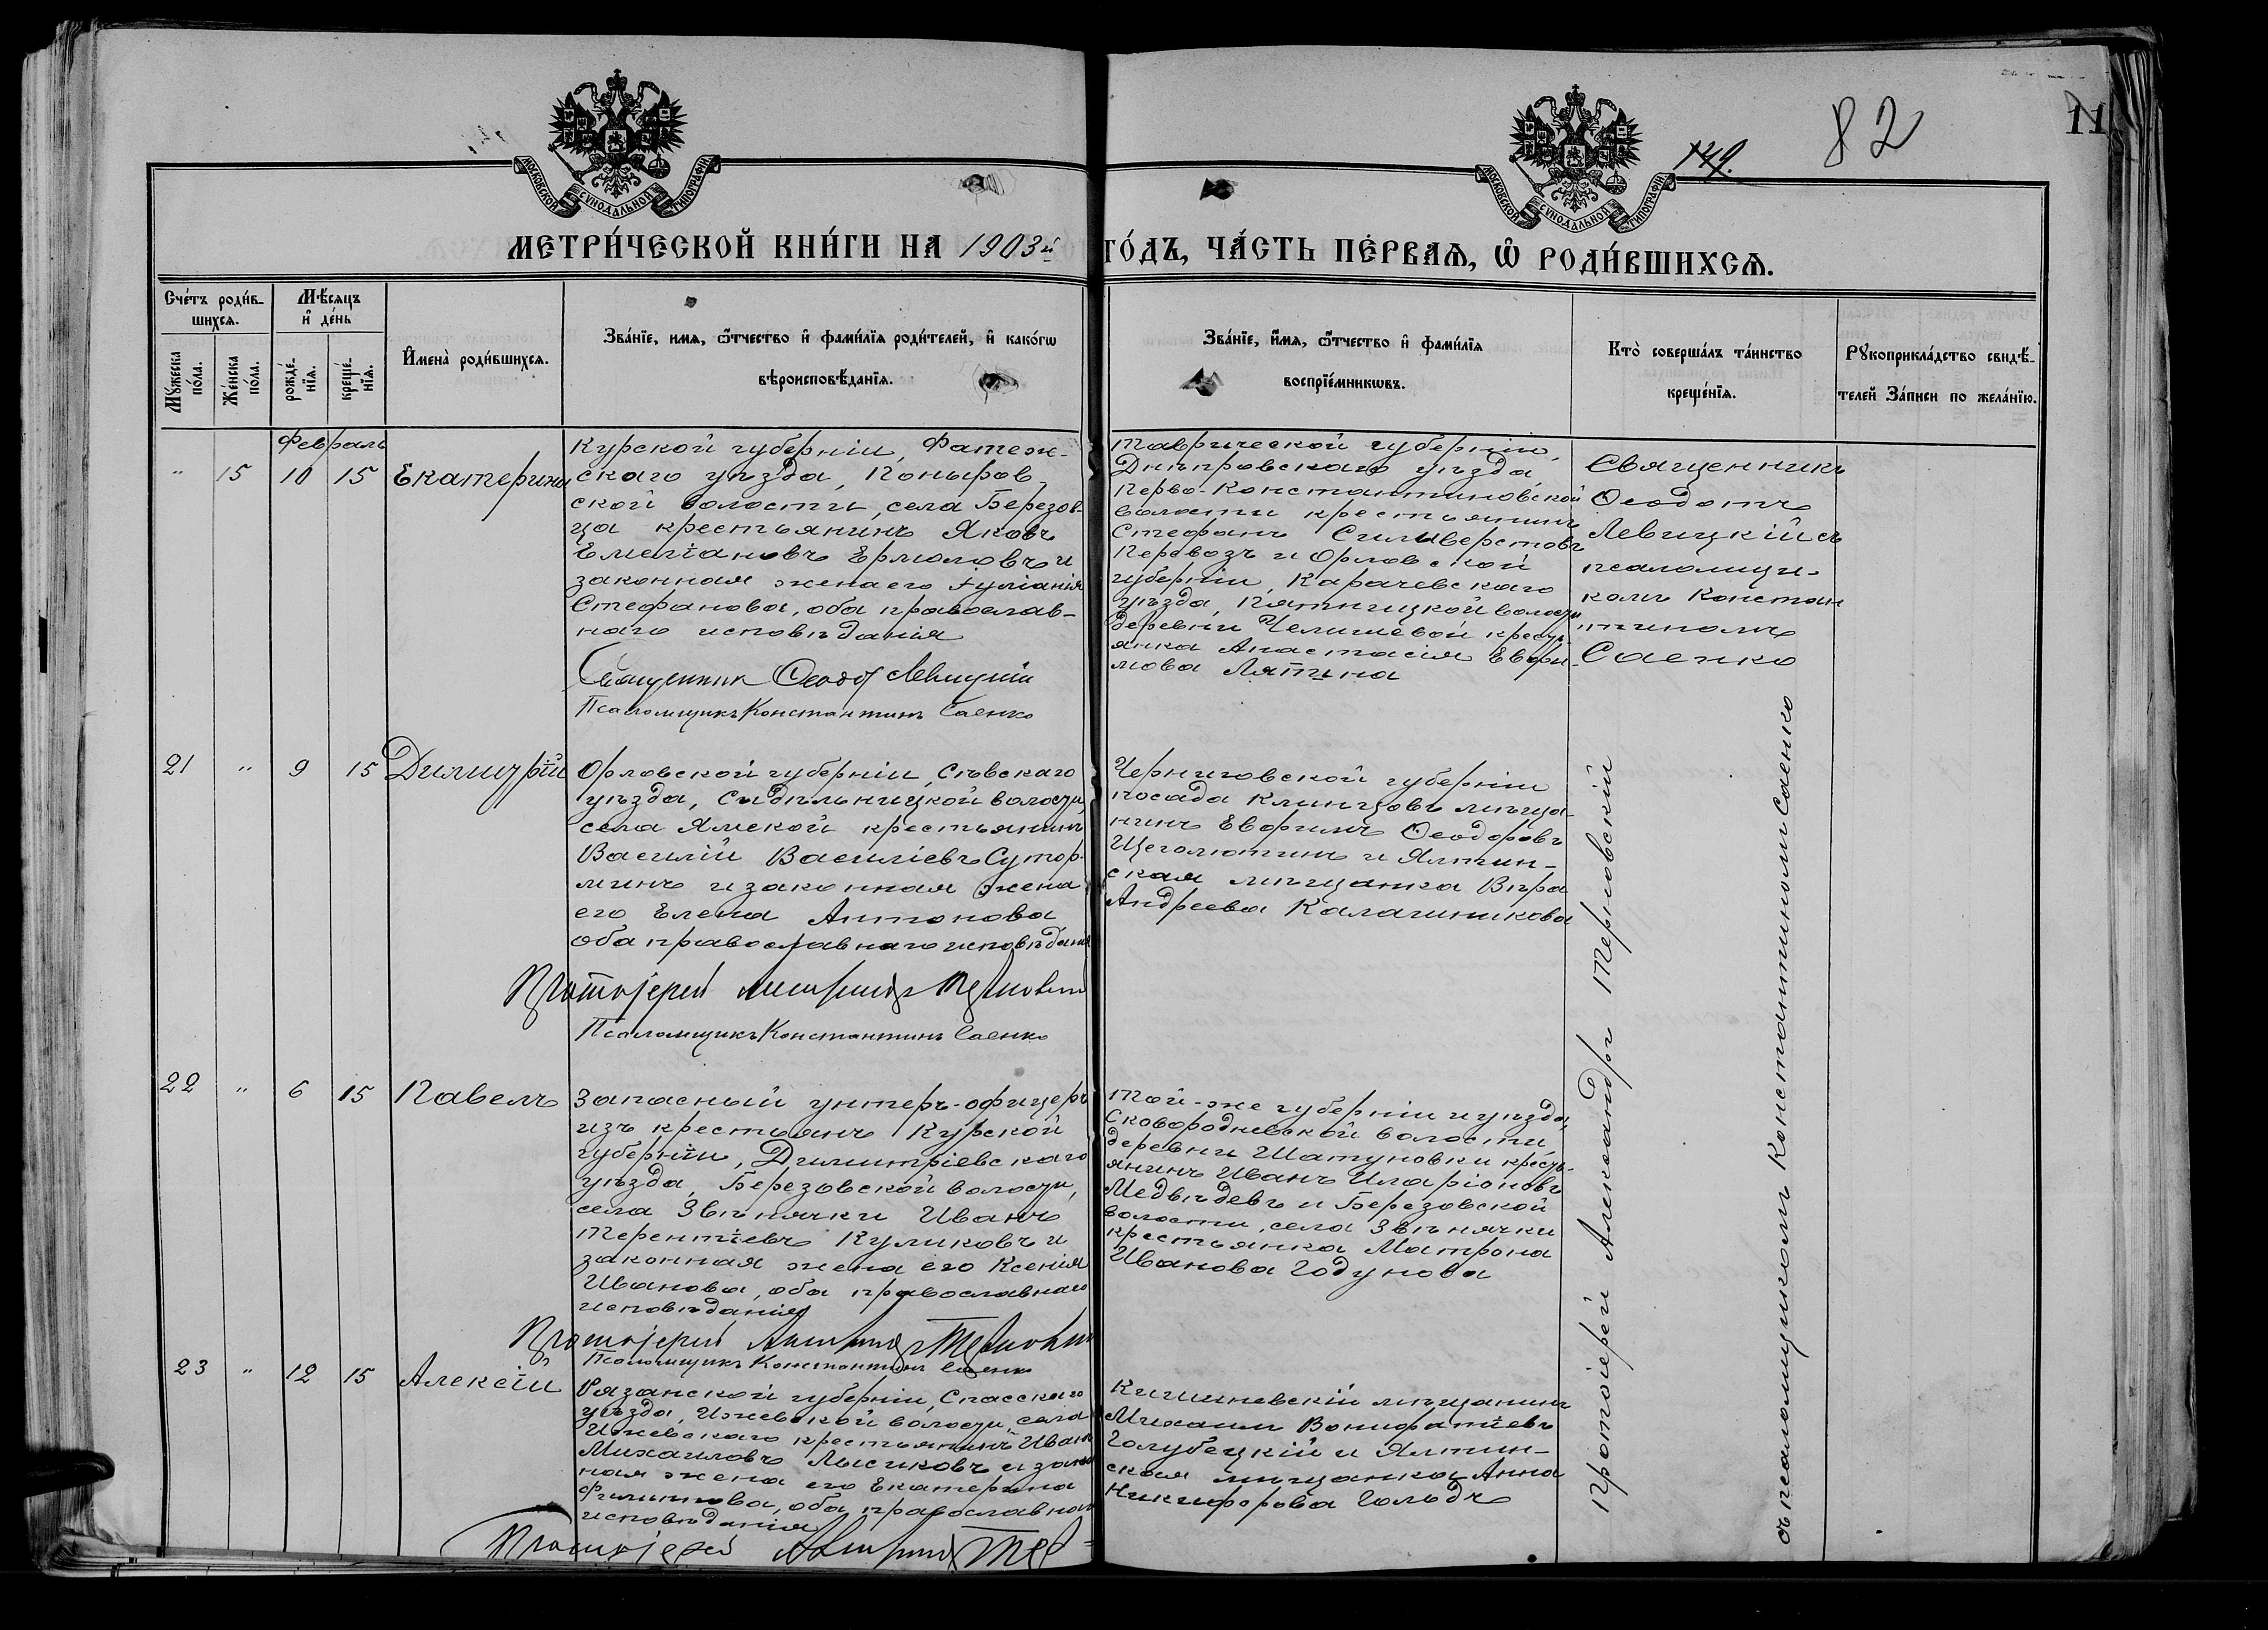 МОСКОВСКОЙ СѴНОДАЛЬНОЙ ТИПОГРАФІИ
МОСКОВСКОЙ СѴНОДАЛЬНОЙ ТИПОГРАФІИ
149.
82
11
МЕТРИ́ЧЕСКОЙ КНИ́ГИ НА 1903й ГО́ДЪ, ЧА́СТЬ ПЕ́РВАѦ, Ѡ҆ РОДИ́ВШИХСѦ.
Сче́тъ роди́в-
шихсѧ.
Му́жеска
по́ла.
Же́нска
по́ла.
Мѣ́сѧцъ
и҆ де́нь
рожде́-
нїѧ.
креще́-
нїѧ.
И҆мена̀ роди́вшихсѧ.
Зва́нїе, имѧ, ѻ҆́тчество и҆ фами́лїѧ роди́телей, и҆ како́гѡ
вѣроисповѣ́данїѧ.
Зва́нїе, и҆́мѧ, ѻ҆́тчество и҆ фами́лїѧ
воспрїе́мникѡвъ.
Кто̀ соверша́лъ та́инство
креще́нїѧ.
Рꙋкоприкла́дство свидѣ́-
телей За́писи по жела́нїю.
Февраль
" 15 10 15 Екатерина
Курской губерніи, Фатеж-
скаго уѣзда, Поныров
ской волости, села Березов-
ца крестьянинъ Яковъ
Емеліановъ Ермоловъ и
законная жена его Іуліанія
Стефанова, оба православ-
наго исповѣданія
Священник Ѳеодот Левицкій
Псаломщикъ Константинъ Саенко
Таврической губерніи,
Днѣпровскаго уѣзда,
Перво-Константиновской
волости крестьянинъ
Стефанъ Силиверстовъ
Перевозъ и Орловской
губерніи, Карачевскаго
уѣзда, Пятницкой волости
деревни Челищевой кресть-
янка Анастасія Евѳи-
мова Ляпина
Священникъ
Ѳеодотъ
Левицкій съ
псаломщи-
комъ Констан
тиномъ
Саенко
21 " 9 15 Димитрій
Орловской губерніи, Сѣвскаго
уѣзда, Сидѣльницкой волости,
села Ямской крестьянинъ
Василій Василіевъ Сутор-
минъ и законная жена
его Елена Антонова
оба православнаго исповѣданія
Протоіерей Александръ Терновскій
Псаломщикъ Константинъ Саенко
Черниговской губерніи
посада Клинцовъ мѣща-
нинъ Евѳимъ Ѳеодоровъ
Щеголютинъ и Ялтин-
ская мѣщанка Вѣра
Андреева Калашникова
22 " 6 15 Павелъ
Запасный унтеръ-офицеръ
изъ крестьянъ Курской
губерніи, Димитріевскаго
уѣзда, Березовской волости,
села Звѣнячки Иванъ
Терентіевъ Куликовъ и
законная жена его Ксенія
Иванова, оба православнаго
исповѣданія
Протоіерей Александръ Терновскій
Псаломщикъ Константинъ Саенко
Той-же губерніи и уѣзда,
Сковородневской волости
деревни Шатуновки кресть-
янинъ Иванъ Иларіоновъ
Медвѣдевъ и Березовской
волости, села Звѣнячки
крестьянка Матрона
Иванова Годунова
23 " 12 15 Алексій
Рязанской губерніи, Спасскаго
уѣзда, Ижевской волости, села
Ижевскаго крестьянинъ Иванъ
Михаиловъ Лысиковъ и закон
ная жена его Екатерина
Филиппова, оба православнаго
исповѣданія
Протоіерей Александръ Тер
Кишиневскій мѣщанинъ
Михаилъ Вонифатіевъ
Голубецкій и Ялтин-
ская мѣщанка Анна
Никифорова Гольдъ
Протоіерей Александръ Терновскій
съ псаломщикомъ Константиномъ Саенко